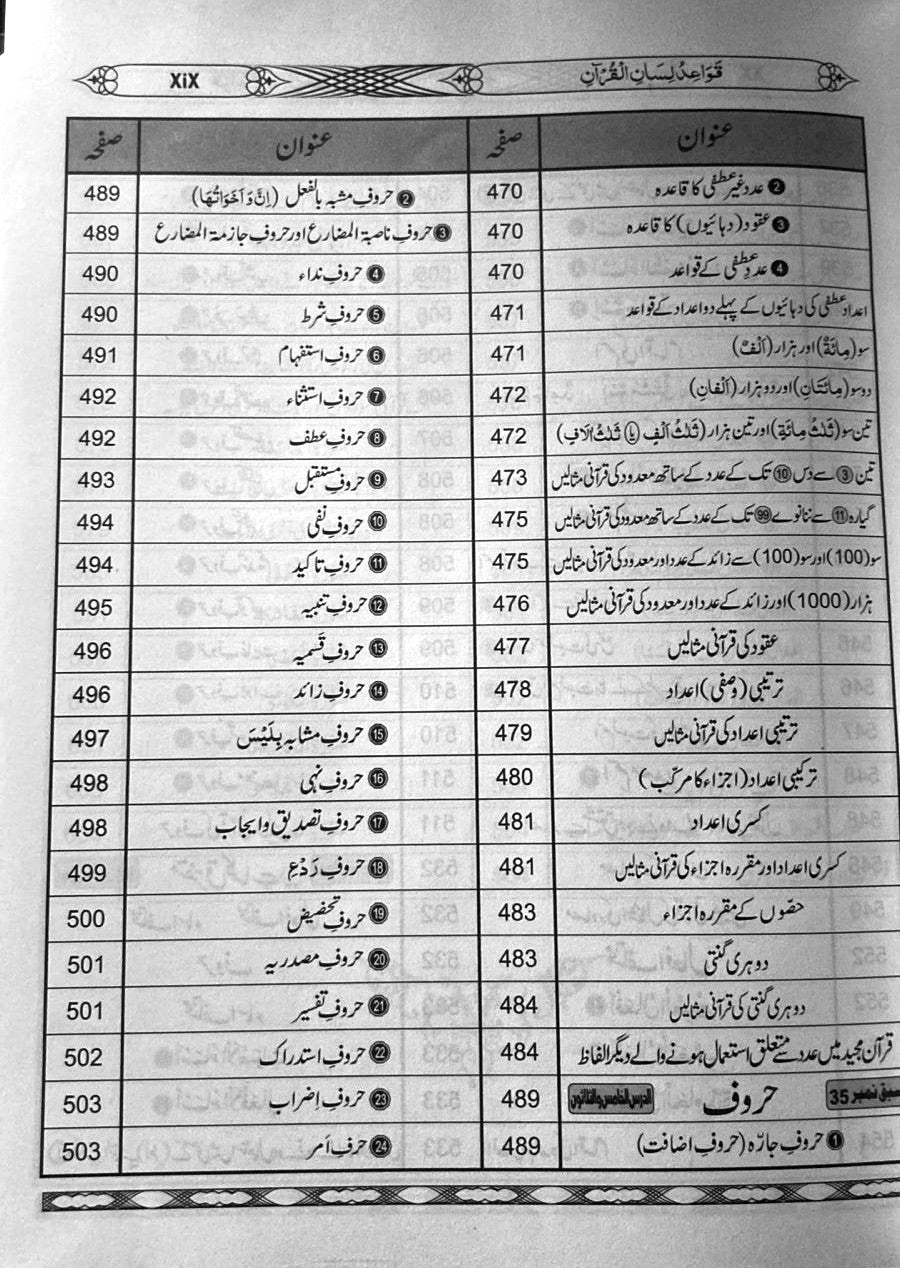 قَوَاعِدُ لِسَانِ الْقُرْآنِ XiX
عنوان صفحہ
❷ عدد غیر عطفی کا قاعدہ 470
❸ عقود (دہائیوں) کا قاعدہ 470
❹ عددِ عطفی کے قواعد 470
اعداد عطفی کی دہائیوں کے پہلے دو اعداد کے قواعد 471
سو (مِائَةٌ) اور ہزار (اَلْفٌ) 471
دو سو (مِائَتَانِ) اور دو ہزار (اَلْفَانِ) 472
تین سو (ثَلٰثُ مِائَةٍ) اور تین ہزار (ثَلٰثُ اَلْفٍ (یا) ثَلٰثُ اٰلَافٍ) 472
تین ③ سے دس ⑩ تک کے عدد کے ساتھ معدود کی قرآنی مثالیں 473
گیارہ ⑪ سے ننانوے 99 تک کے عدد کے ساتھ معدود کی قرآنی مثالیں 475
سو (100) اور سو (100) سے زائد کے عدد اور معدود کی قرآنی مثالیں 475
ہزار (1000) اور زائد کے عدد اور معدود کی قرآنی مثالیں 476
عقود کی قرآنی مثالیں 477
ترتیبی (وصفی) اعداد 478
ترتیبی اعداد کی قرآنی مثالیں 479
ترکیبی اعداد (اجزاء کا مرکّب) 480
کسری اعداد 481
کسری اعداد اور مقررہ اجزاء کی قرآنی مثالیں 481
حصّوں کے مقررہ اجزاء 483
دوہری گنتی 483
دوہری گنتی کی قرآنی مثالیں 484
قرآن مجید میں عدد سے متعلق استعمال ہونے والے دیگر الفاظ 484
سبق نمبر 35 حروف الدرس الخامس والثلاثون 489
❶ حروفِ جارّہ (حروفِ اضافت) 489
عنوان صفحہ
❷ حروفِ مشبہ بالفعل (اِنَّ وَ اَخَوَاتُهَا) 489
❸ حروفِ ناصبۃ المضارع اور حروفِ جازمۃ المضارع 489
❹ حروفِ نداء 490
❺ حروفِ شرط 490
❻ حروفِ استفہام 491
❼ حروفِ استثناء 492
❽ حروفِ عطف 492
❾ حروفِ مستقبل 493
❿ حروفِ نفی 494
⓫ حروفِ تاکید 494
⓬ حروفِ تنبیہ 495
⓭ حروفِ قَسمیہ 496
⓮ حروفِ زائد 496
⓯ حروفِ مشابہ بِلَیْسَ 497
⓰ حروفِ نہی 498
⓱ حروفِ تصدیق و ایجاب 498
⓲ حروفِ رَدْعِ 499
⓳ حروفِ تحضیض 500
⓴ حروفِ مصدریہ 501
㉑ حروفِ تفسیر 501
㉒ حروفِ استدراک 502
㉓ حروفِ اِضراب 503
㉔ حروفِ اَمر 503